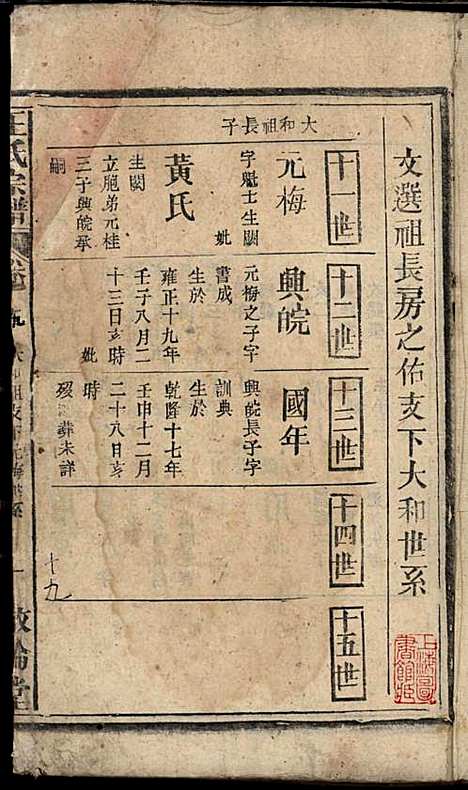 文選祖長房之佑支下大和世系
大和祖長子
十一世
元梅
字魁士生闕
妣
黃氏
生闕
立胞弟元桂
三子興皖承
嗣
十二世
興皖
元梅之子字
書成
生於
雍正十九年
壬子八月二
十三日亥時
妣
十三世
國年
興皖長子字
訓典
生於
乾隆十七年
壬申十二月
二十八日亥
時
歿葬未詳
十四世
十五世
十九
氏宗譜